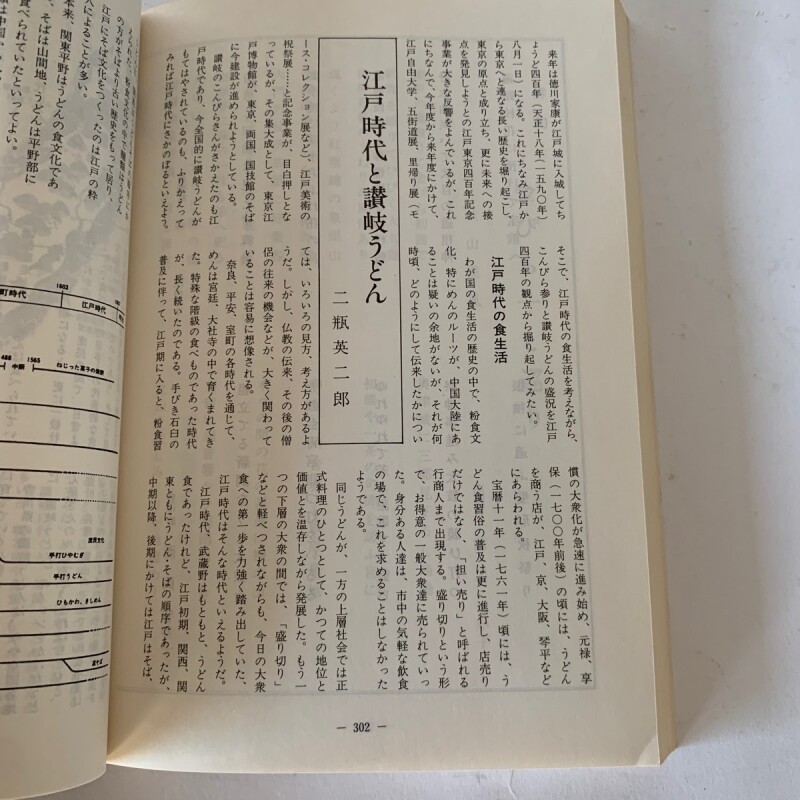 来年は徳川家康が江戸城に入城してち
ょうど四百年(天正十八年(一五九〇年)
八月一日)になる。これにちなみ江戸か
ら東京へと連なる長い歴史を掘り起こし、
東京の原点と成り立ち、更に未来への接
点を発見しようとの江戸東京四百年記念
事業が大きな反響をよんでいるが、これ
にちなんで、今年度から来年度にかけて、
江戸自由大学、五街道展、里帰り展(モ
江戸時代と讃岐うどん
二瓶英二郎
ース・コレクション展など)、江戸美術の
祝祭展……と記念事業が、目白押しとな
っているが、その集大成として、東京江
戸博物館が、東京、両国、国技館のそば
に今建設が進められようとしている。
讃岐のこんぴらさんがさかえたのも江
戸時代であり、今全国的に讃岐うどんが
もてはやされているのも、ふりかえって
みれば江戸時代にさかのぼるといえよう。
そこで、江戸時代の食生活を考えながら、
こんぴら参りと讃岐うどんの盛況を江戸
四百年の観点から掘り起してみたい。
江戸時代の食生活
わが国の食生活の歴史の中で、粉食文
化、特にめんのルーツが、中国大陸にあ
ることは疑いの余地がないが、それが何
時頃、どのようにして伝来したかについ
ては、いろいろの見方、考え方があるよ
うだ。しかし、仏教の伝来、その後の僧
侶の往来の機会などが、大きく関わって
いることは容易に想像される。
奈良、平安、室町の各時代を通じて、
めんは宮廷、大社寺の中で育くまれてき
た。特殊な階級の食べものであった時代
が、長く続いたのである。手びき石臼の
普及に伴って、江戸期に入ると、粉食習
慣の大衆化が急速に進み始め、元禄、享
保(一七〇〇年前後)の頃には、うどん
を商う店が、江戸、京、大阪、琴平など
にあらわれる。
宝暦十一年(一七六一年)頃には、う
どん食習俗の普及は更に進行し、店売り
だけではなく、「担い売り」と呼ばれる
行商人まで出現する。盛り切りという形
で、お得意の一般大衆達に売られていっ
た。身分ある人達は、市中の気軽な飲食
の場で、これを求めることはしなかった
ようである。
同じうどんが、一方の上層社会では正
式料理のひとつとして、かつての地位と
価値とを温存しながら発展した。もう一
つの下層の大衆の間では、「盛り切り」
などと軽べつされながらも、今日の大衆
食への第一歩を力強く踏み出していた、
江戸時代はそんな時代といえるようだ。
江戸時代、武蔵野はもともと、うどん
食であったけれど、江戸初期、関西、関
東ともにうどん・そばの順序であったが、
中期以降、後期にかけては江戸はそば、
— 302 —
の方がそばより古い歴史をもって居り、
江戸にそば文化をつくったのは江戸の粋
人によることが多い。
本来、関東平野はうどんの食文化であ
、そばは山間地、うどんは平野部に
食べられていたといってよい。
町時代
1603
江戸時代
1565
ねじった菓子の索餅
庶民文化
手打ひやむぎ
手打うどん
ひもかわ、きしめん